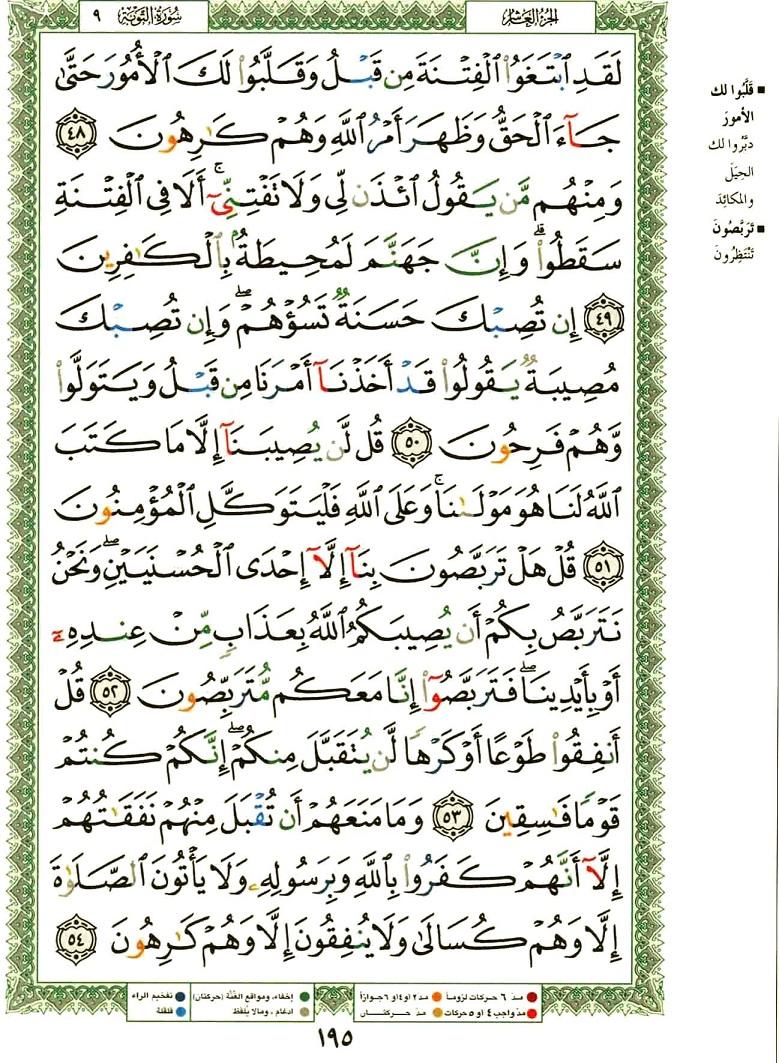 الجزء العاشر
سورة التوبة ٩
لَقَدِ ٱبْتَغَوُا۟ ٱلْفِتْنَةَ مِن قَبْلُ وَقَلَّبُوا۟ لَكَ ٱلْأُمُورَ حَتَّىٰ
جَآءَ ٱلْحَقُّ وَظَهَرَ أَمْرُ ٱللَّهِ وَهُمْ كَٰرِهُونَ ٤٨
وَمِنْهُم مَّن يَقُولُ ٱئْذَن لِّى وَلَا تَفْتِنِّىٓ ۚ أَلَا فِى ٱلْفِتْنَةِ
سَقَطُوا۟ ۗ وَإِنَّ جَهَنَّمَ لَمُحِيطَةٌۢ بِٱلْكَٰفِرِينَ
٤٩ إِن تُصِبْكَ حَسَنَةٌ تَسُؤْهُمْ ۖ وَإِن تُصِبْكَ
مُصِيبَةٌ يَقُولُوا۟ قَدْ أَخَذْنَآ أَمْرَنَا مِن قَبْلُ وَيَتَوَلَّوا۟
وَّهُمْ فَرِحُونَ ٥٠ قُل لَّن يُصِيبَنَآ إِلَّا مَا كَتَبَ
ٱللَّهُ لَنَا هُوَ مَوْلَىٰنَا ۚ وَعَلَى ٱللَّهِ فَلْيَتَوَكَّلِ ٱلْمُؤْمِنُونَ
٥١ قُلْ هَلْ تَرَبَّصُونَ بِنَآ إِلَّآ إِحْدَى ٱلْحُسْنَيَيْنِ ۖ وَنَحْنُ
نَتَرَبَّصُ بِكُمْ أَن يُصِيبَكُمُ ٱللَّهُ بِعَذَابٍ مِّنْ عِندِهِۦٓ
أَوْ بِأَيْدِينَا ۖ فَتَرَبَّصُوٓا۟ إِنَّا مَعَكُم مُّتَرَبِّصُونَ ٥٢ قُلْ
أَنفِقُوا۟ طَوْعًا أَوْ كَرْهًا لَّن يُتَقَبَّلَ مِنكُمْ ۖ إِنَّكُمْ كُنتُمْ
قَوْمًا فَٰسِقِينَ ٥٣ وَمَا مَنَعَهُمْ أَن تُقْبَلَ مِنْهُمْ نَفَقَٰتُهُمْ
إِلَّآ أَنَّهُمْ كَفَرُوا۟ بِٱللَّهِ وَبِرَسُولِهِۦ وَلَا يَأْتُونَ ٱلصَّلَوٰةَ
إِلَّا وَهُمْ كُسَالَىٰ وَلَا يُنفِقُونَ إِلَّا وَهُمْ كَٰرِهُونَ ٥٤
■ قَلَّبُوا لك
الأمورَ
دبَّروا لك
الحِيَلَ
والمكائِدَ
■ تَرَبَّصُونَ
تَنْتَظِرُونَ
مدّ ٦ حركات لزوماً ● مدّ ٢ أو ٤ أو ٦ جوازاً
مدّ واجب ٤ أو ٥ حركات ● مدّ حركتان
إخفاء، ومواقع الغُنَّة (حركتان) ● تفخيم الراء
إدغام، وما لا يُلفَظ ● قلقلة
١٩٥